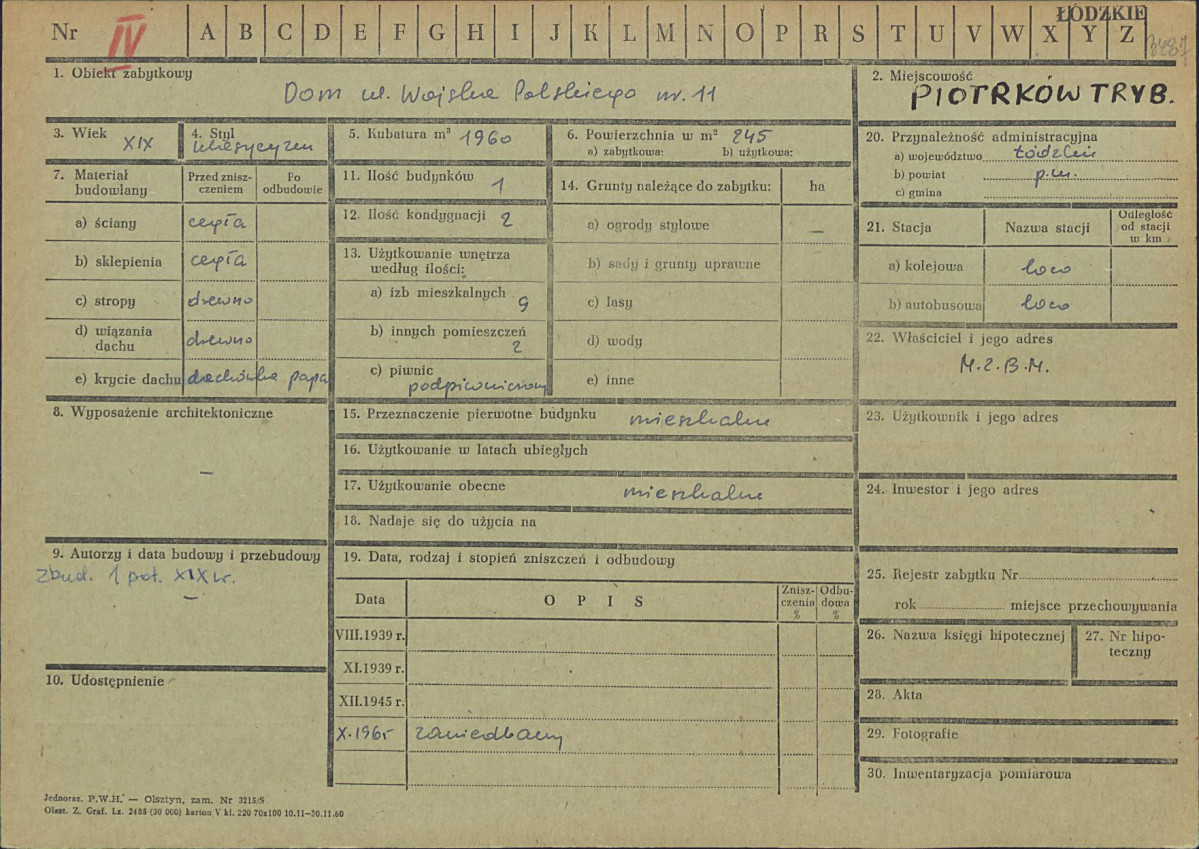 Nr IV A B C D E F G H I J K L M N O P R S T U V W X Y Z ŁÓDZKIE
3487
1. Obiekt zabytkowy
Dom ul. Wojska Polskiego nr. 11
2. Miejscowość
PIOTRKÓW TRYB.
3. Wiek
XIX
4. Styl
klasycyzm
5. Kubatura m³ 1960
6. Powierzchnia w m² 245
a) zabytkowa: b) użytkowa:
7. Materiał budowlany
Przed zniszczeniem
Po odbudowie
a) ściany cegła
b) sklepienia cegła
c) stropy drewno
d) wiązania dachu drewno
e) krycie dachu dachówka papa
8. Wyposażenie architektoniczne
–
9. Autorzy i data budowy i przebudowy
zbud. 1 poł. XIX w.
–
10. Udostępnienie
11. Ilość budynków 1
12. Ilość kondygnacji 2
13. Użytkowanie wnętrza
według ilości:
a) izb mieszkalnych 9
b) innych pomieszczeń
2
c) piwnic
podpiwniczony
14. Grunty należące do zabytku: ha
a) ogrody stylowe –
b) sady i grunty uprawne
c) lasy
d) wody
e) inne
15. Przeznaczenie pierwotne budynku mieszkalne
16. Użytkowanie w latach ubiegłych
17. Użytkowanie obecne mieszkalne
18. Nadaje się do użycia na
19. Data, rodzaj i stopień zniszczeń i odbudowy
Data OPIS Zniszczenia % Odbudowa %
VIII.1939 r.
XI.1939 r.
XII.1945 r.
X.1965 zaniedbany
20. Przynależność administracyjna
a) województwo Łódzkie
b) powiat p.m.
c) gmina
21. Stacja Nazwa stacji Odległość od stacji w km
a) kolejowa loco
b) autobusowa loco
22. Właściciel i jego adres
M.Z.B.M.
23. Użytkownik i jego adres
24. Inwestor i jego adres
25. Rejestr zabytku Nr
rok miejsce przechowywania
26. Nazwa księgi hipotecznej
27. Nr hipoteczny
28. Akta
29. Fotografie
30. Inwentaryzacja pomiarowa
Jednoraz. P.W.H. — Olsztyn, zam. Nr 3215/S
Olszt. Z. Graf. Lz. 2485 (30 000) karton V kl. 220 70x100 10.11—30.11.60